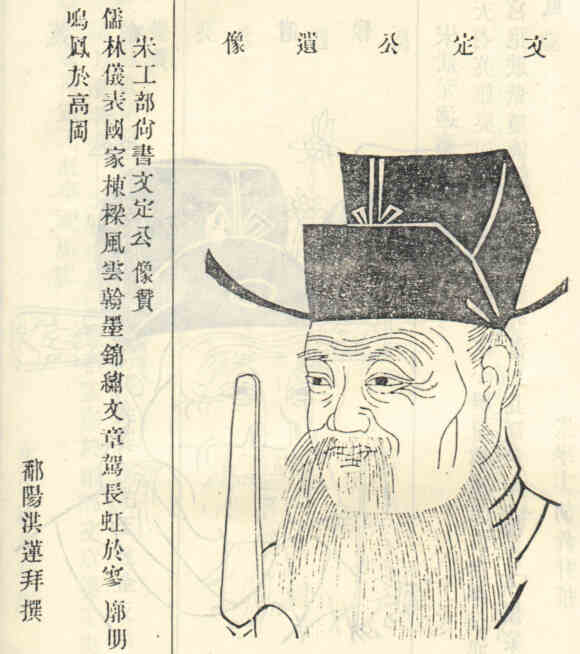 文定公遺像
宋工部尚書文定公像贊
儒林儀表國家棟樑風雲翰墨錦繡文章駕長虹於寥廓明
鳴鳳於高岡
鄱陽洪蓮拜撰